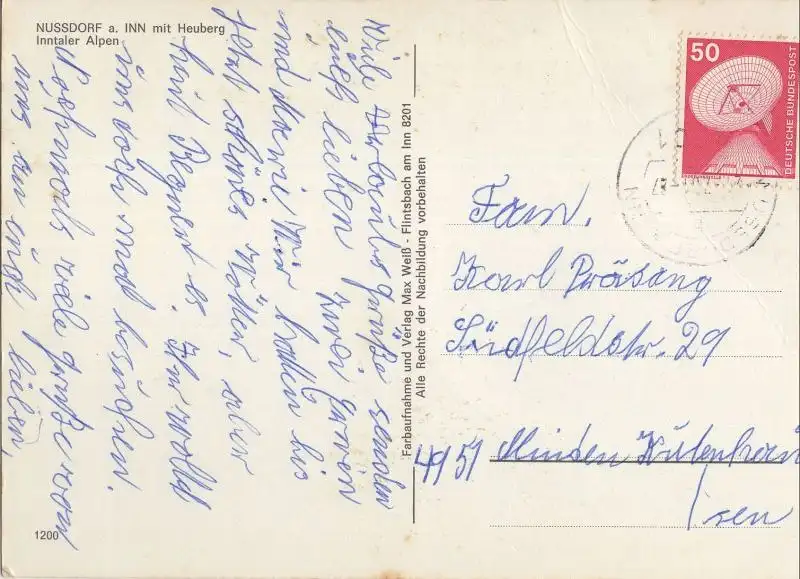 NUSSDORF a. INN mit Heuberg
Inntaler Alpen
Viele Urlaubsgrüße senden
euch lieben zwei
und wir hatten bis
jetzt schönes Wetter, aber
heut Regnet es. Ihr wolld
uns doch mal besuchen.
Nochmals viele grüße von
uns an euch lieben,
1200
Farbaufnahme und Verlag Max Weiß - Flintsbach am Inn 8201
Alle Rechte der Nachbildung vorbehalten
50
DEUTSCHE BUNDESPOST
Fam.
Karl Präsang
Südfeldstr. 29
4951 Minden Kutenhau
sen